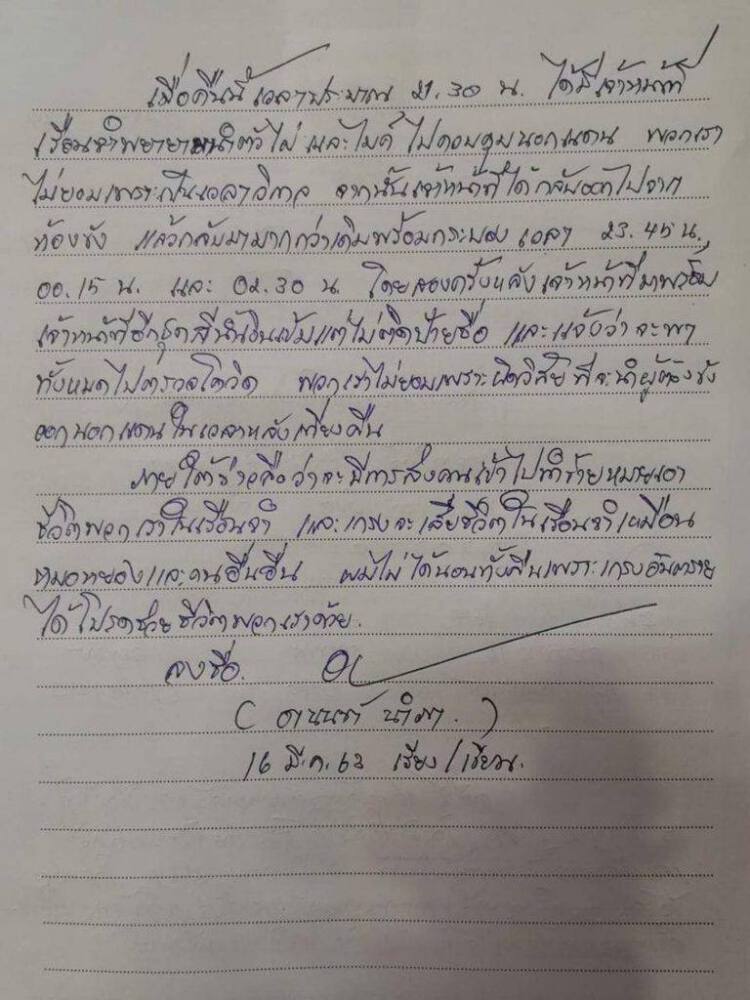 เมื่อคืนนี้ เวลาประมาณ 21.30 น. ได้มีเจ้าหน้าที่
เรือนจำพยายามนำตัวไผ่ และไมค์ ไปควบคุมนอกแดน พวกเรา
ไม่ยอมเพราะเป็นเวลาวิกาล จากนั้นเจ้าหน้าที่ได้กลับออกไปจาก
ห้องขัง แล้วกลับมามากกว่าเดิมพร้อมกระบอง เวลา 23.45 น.,
00.15 น. และ 02.30 น. โดยสองครั้งหลังเจ้าหน้าที่มาพร้อม
เจ้าหน้าที่อีกชุดสีน้ำเงินเข้มแต่ไม่ติดป้ายชื่อ และแจ้งว่าจะพา
ทั้งหมดไปตรวจโควิด พวกเราไม่ยอมเพราะผิดวิสัยที่จะนำผู้ต้องขัง
ออกนอกแดนในเวลาหลังเที่ยงคืน
ภายใต้ข่าวลือว่าจะมีการส่งคนเข้าไปทำร้ายหมายเอา
ชีวิตพวกเราในเรือนจำ และเกรงจะเสียชีวิตในเรือนจำเหมือน
หมอหยองและคนอื่นอื่น ผมไม่ได้นอนทั้งคืนเพราะเกรงอันตราย
ได้โปรดช่วยชีวิตพวกเราด้วย.
ลงชื่อ.
( อานนท์ นำภา. )
16 มี.ค. 64 เรียง/เขียน.